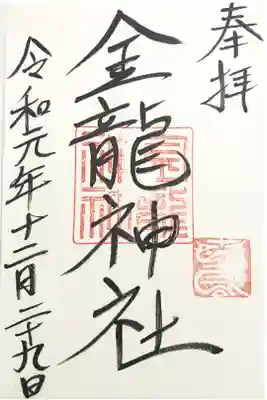 奉拝
金龍神社
令和元年十二月二十九日